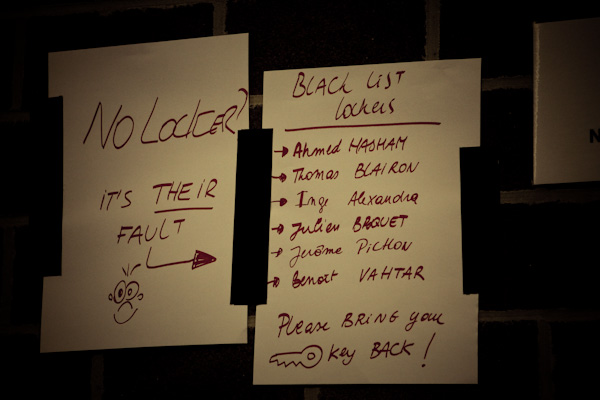 No Locker?
it's THEIR
FAULT
BLACK LIST
lockers
Ahmed HASHAM
Thomas BLAIRON
Inge Alexandra
Julien BAQUET
Jérôme PICHON
Benoit VAHTAR
Please BRING your
key BACK!
N